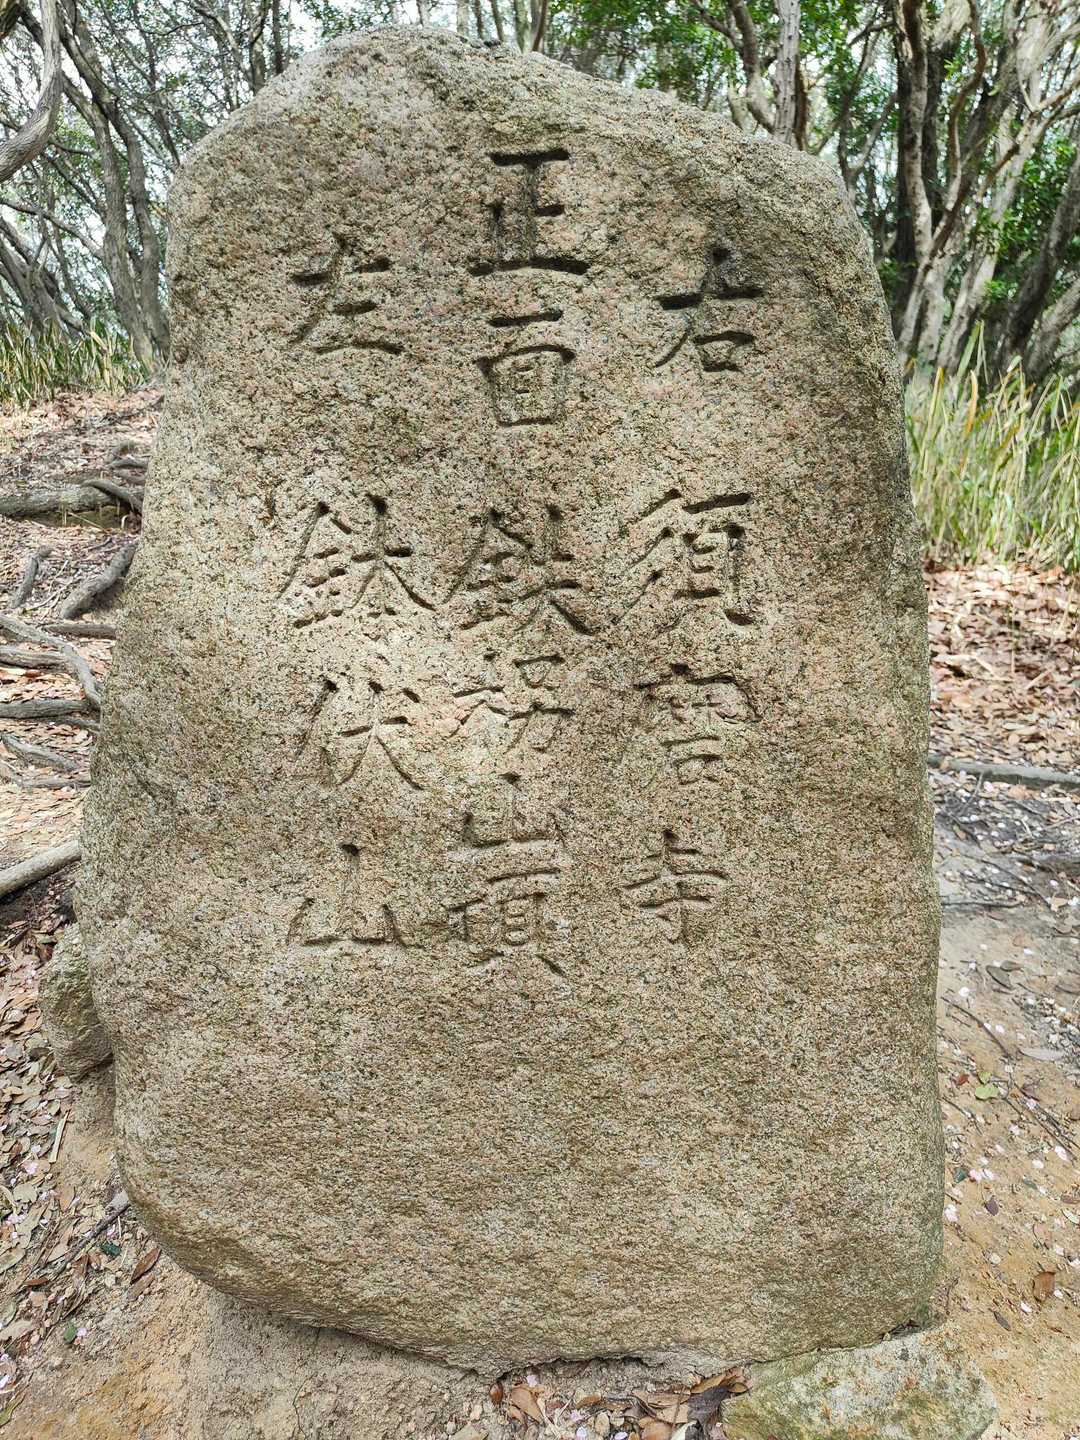 右 須磨寺
正面 鉄拐山頂
左 鉢伏山